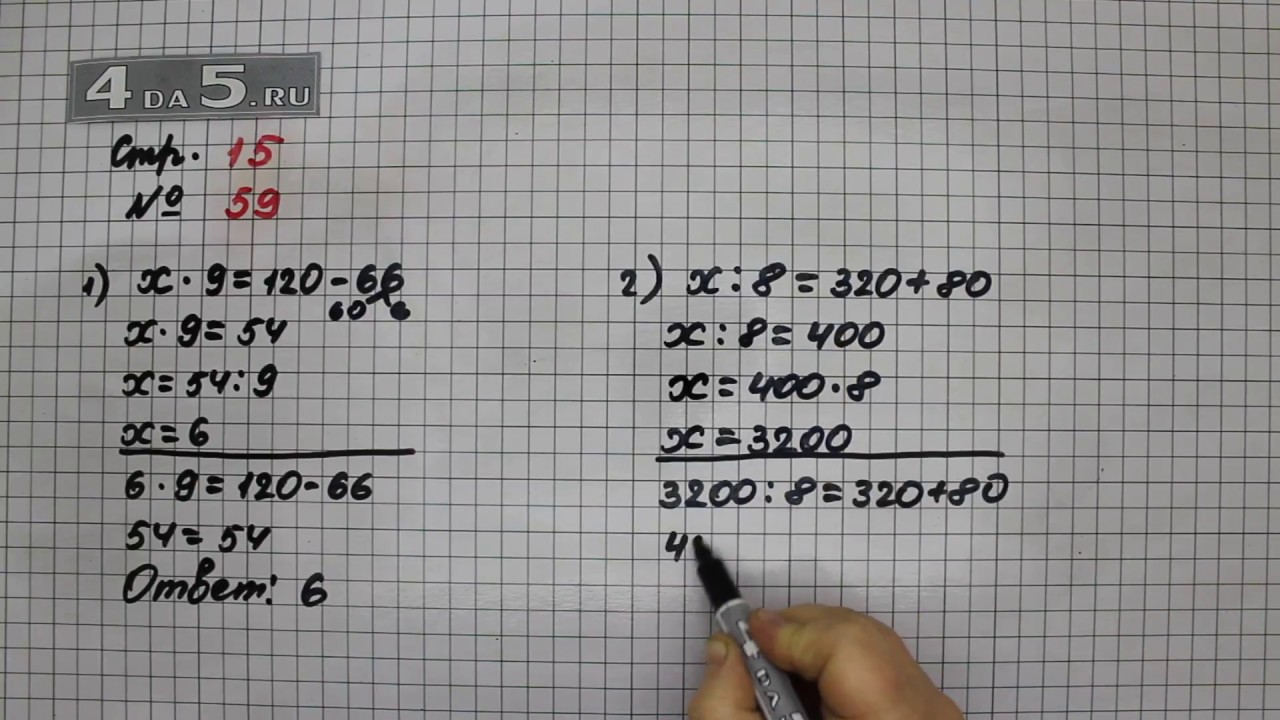 4DA5.RU
Стр. 15
№ 59
1) x · 9 = 120 - 66
60 6
x · 9 = 54
x = 54 : 9
x = 6
6 · 9 = 120 - 66
54 = 54
Ответ: 6
2) x : 8 = 320 + 80
x : 8 = 400
x = 400 · 8
x = 3200
3200 : 8 = 320 + 80
4